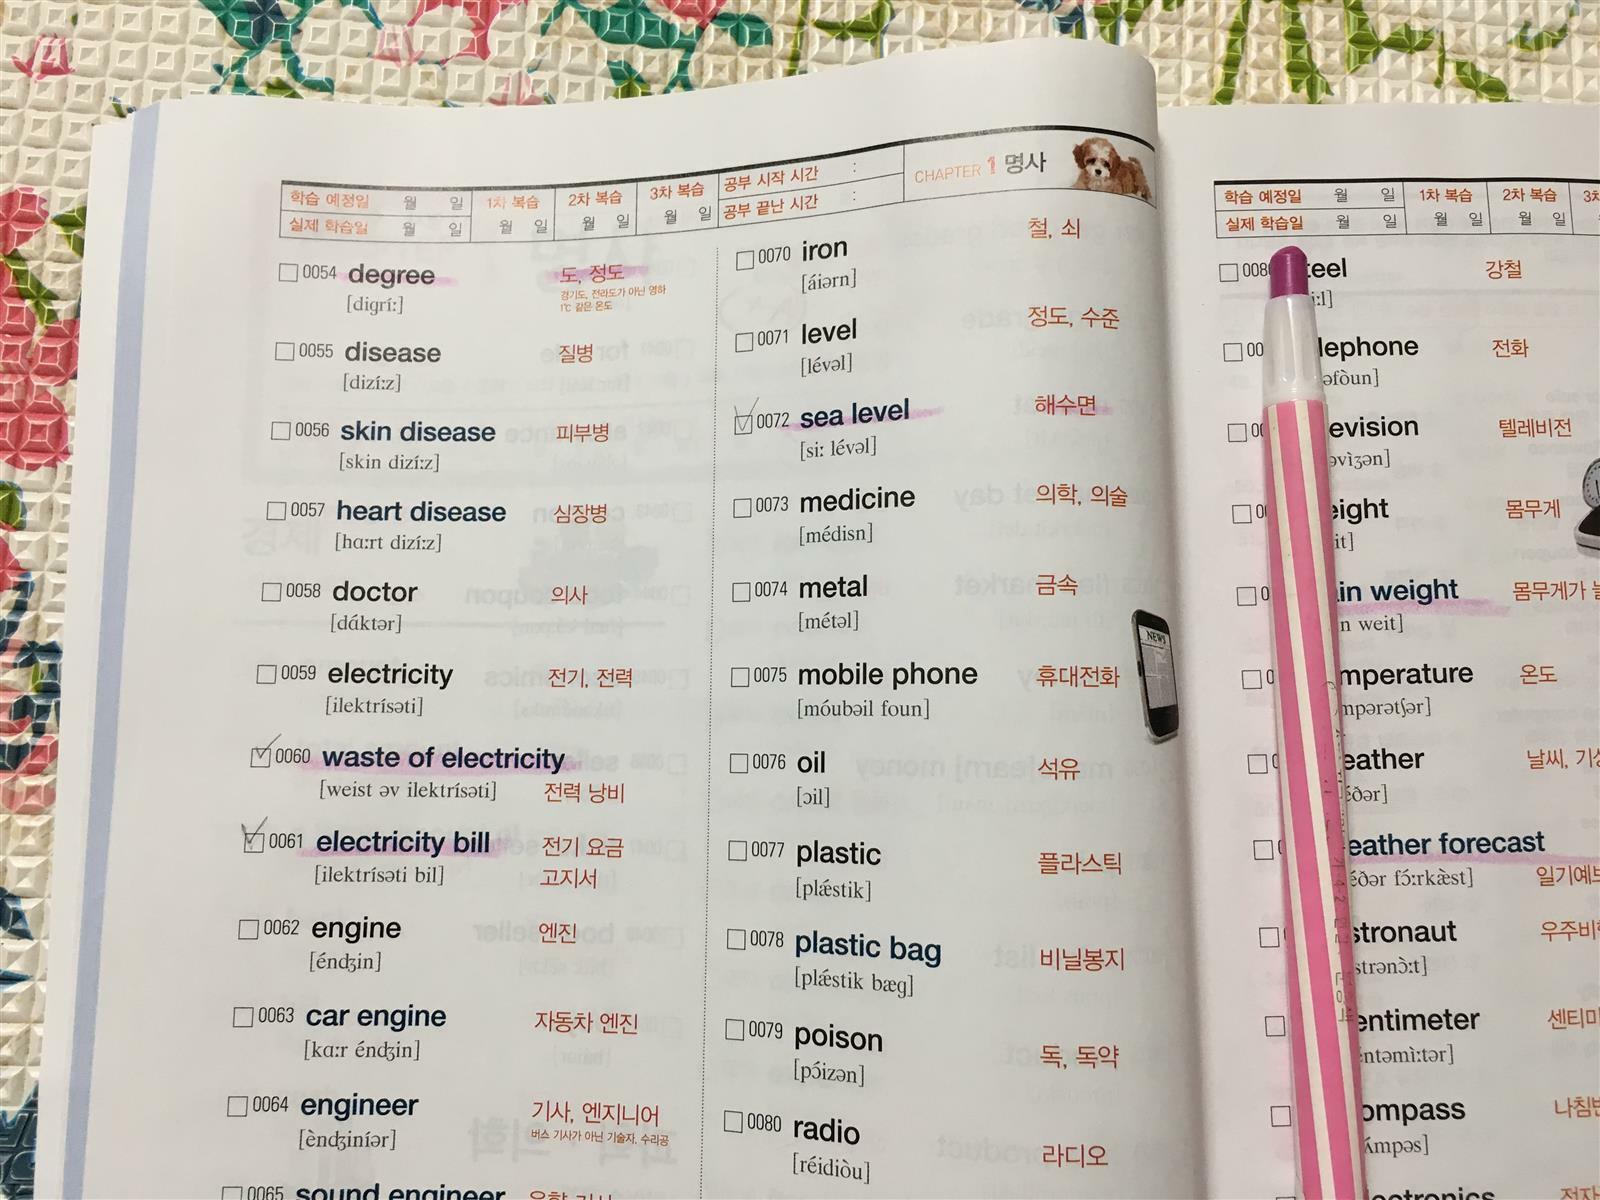 학습 예정일 월 일 1차 복습 2차 복습 3차 복습 공부 시작 시간 :
실제 학습일 월 일 월 일 월 일 월 일 공부 끝난 시간 :
CHAPTER 1 명사
0054 degree 도, 정도
[digríː]
경기도, 전라도가 아닌 영하
1℃ 같은 온도
0055 disease 질병
[dizíːz]
0056 skin disease 피부병
[skin dizíːz]
0057 heart disease 심장병
[hɑːrt dizíːz]
0058 doctor 의사
[dάktər]
0059 electricity 전기, 전력
[ilektrísəti]
0060 waste of electricity
[weist əv ilektrísəti] 전력 낭비
0061 electricity bill 전기 요금
[ilektrísəti bil] 고지서
0062 engine 엔진
[éndʒin]
0063 car engine 자동차 엔진
[kɑːr éndʒin]
0064 engineer 기사, 엔지니어
[èndʒiníər] 버스 기사가 아닌 기술자, 수리공
0065 sound engineer
0070 iron 철, 쇠
[áiərn]
0071 level 정도, 수준
[lévəl]
0072 sea level 해수면
[siː lévəl]
0073 medicine 의학, 의술
[médisn]
0074 metal 금속
[métəl]
0075 mobile phone 휴대전화
[móubəil foun]
NEWS
0076 oil 석유
[ɔil]
0077 plastic 플라스틱
[plǽstik]
0078 plastic bag 비닐봉지
[plǽstik bæg]
0079 poison 독, 독약
[pɔ́izən]
0080 radio 라디오
[réidiòu]
학습 예정일 월 일 1차 복습 2차 복습
실제 학습일 월 일 월 일 월 일
강철
전화
텔레비전
몸무게
weight 몸무게가
weit]
온도
날씨,
forecast
fɔ́ːrkæ̀st]